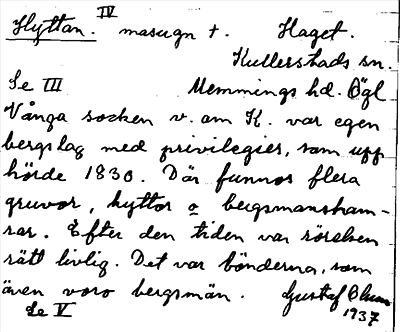 Hyttan. IV masugn +. Haget.
Kullerstads sn.
Se III Memmings hd. Ögl
Vånga socken v. om K. var egen
bergslag med privilegier, som upp
hörde 1830. Där funnos flera
gruvor, hyttor o bergsmansham-
rar. Efter den tiden var rörelsen
rätt livlig. Det var bönderna, som
även voro bergsmän. Gustaf Blum
Se V 1937